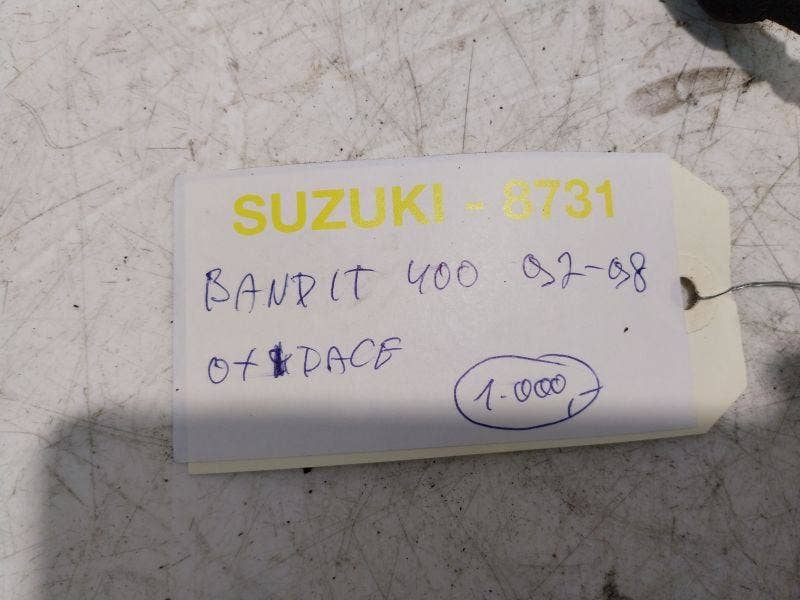 SUZUKI - 8731
BANDIT 400 92-98
OXIDACE
1.000,-